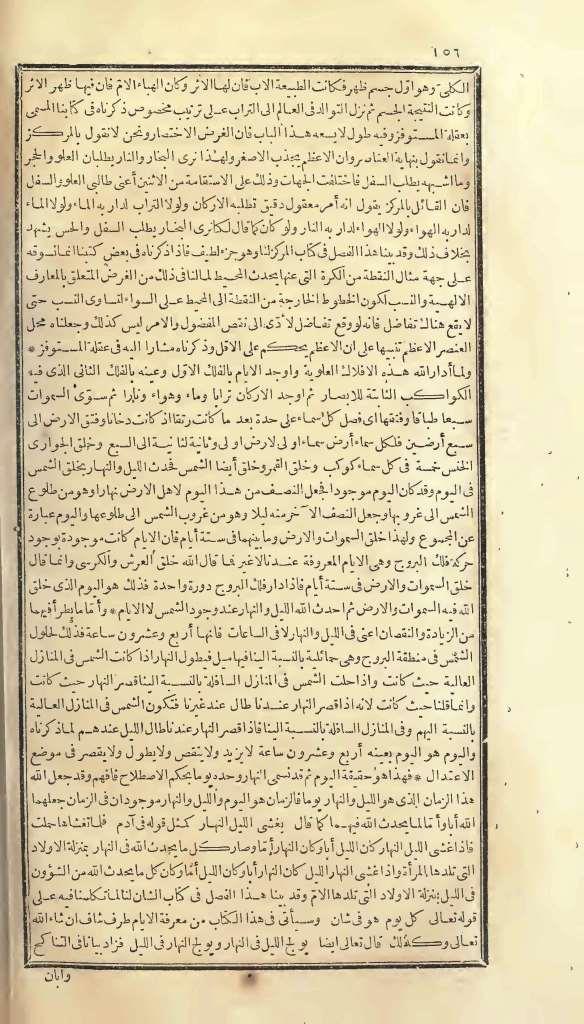 ١٥٦
الكلي وهو أول جسم ظهر فكانت الطبيعة الاب فان لها الاثر وكان الهباء الام فان فيها ظهر الاثر
وكانت النتيجة الجسم ثم نزل التوالد في العالم الى التراب على ترتيب مخصوص ذكرناه في كتابنا المسمى
بعقلة المستوفز وفيه طول لا يسعه هذا الباب فان الغرض الاختصار ونحن لا نقول بالمركز
وانما نقول بنهاية العناصر وان الاعظم يجذب الاصغر ولهذا نرى البخار والنار يطلبان العلو والحجر
وما اشبهه يطلب السفل فاختلفت الجهات وذلك على الاستقامة من الاثنين أعنى طالبى العلو والسفل
فان القائل بالمركز يقول انه أمر معقول دقيق تطلبه الاركان ولولا التراب لدار به الماء ولولا الماء
لدار به الهواء ولولا الهواء لدار به النار ولو كان كما قال لكنا نرى البخار يطلب السفل والحس يشهد
بخلاف ذلك وقد بينا هذا الفصل في كتاب المركز لنا وهو جزء لطيف فاذا ذكرناه في بعض كتبنا انما نسوقه
على جهة مثال النقطة من الكرة التى عنها يحدث المحيط لما لنا فى ذلك من الغرض المتعلق بالمعارف
الالهية والنسب لكون الخطوط الخارجة من النقطة الى المحيط على السواء لتساوى النسب حتى
لا يقع هناك تفاضل فانه لو وقع تفاضل لأدى الى نقص المفضول والامر ليس كذلك وجعلناه محل
العنصر الاعظم تنبيها على ان الاعظم يحكم على الاقل وذكرناه مشارا اليه فى عقلة المستوفز *
ولما أدار الله هذه الافلاك العلوية وأوجد الايام بالفلك الاول وعينه بالفلك الثانى الذى فيه
الكواكب الثابتة للابصار ثم أوجد الاركان ترابا وماء وهواء ونارا ثم سوى السموات
سبعا طباقا وفتقها أى فصل كل سماء على حدة بعد ما كانت رتقا اذ كانت دخانا وفتق الارض الى
سبع أرضين فلكل سماء أرض سماء أولى لارض أولى وثانية لثانية الى السبع وخلق الجوارى
الخنس خمسة في كل سماء كوكب وخلق القمر وخلق أيضا الشمس فحدث الليل والنهار بخلق الشمس
فى اليوم وقد كان اليوم موجودا فجعل النصف من هذا اليوم لاهل الارض نهارا وهو من طلوع
الشمس الى غروبها وجعل النصف الآخر منه ليلا وهو من غروب الشمس الى طلوعها واليوم عبارة
عن المجموع ولهذا خلق السموات والارض وما بينهما فى ستة أيام فان الايام كانت موجودة بوجود
حركة فلك البروج وهى الايام المعروفة عندنا لا غير فما قال الله خلق العرش والكرسى وانما قال
خلق السموات والارض فى ستة أيام فاذا دار فلك البروج دورة واحدة فذلك هو اليوم الذى خلق
الله فيه السموات والارض ثم احدث الله الليل والنهار عند وجود الشمس لا الايام * وأما ما يطرأ فيهما
من الزيادة والنقصان اعنى فى الليل والنهار لا فى الساعات فانها أربع وعشرون ساعة فذلك لحلول
الشمس فى منطقة البروج وهى حمائلية بالنسبة الينا فيها ميل فيطول النهار اذا كانت الشمس فى المنازل
العالية حيث كانت واذا حلت الشمس فى المنازل السافلة بالنسبة الينا قصر النهار حيث كانت
وانما قلنا حيث كانت لانه اذا قصر النهار عندنا طال عند غيرنا فتكون الشمس فى المنازل العالية
بالنسبة اليهم وفى المنازل السافلة بالنسبة الينا فاذا قصر النهار عندنا طال الليل عندهم لما ذكرناه
واليوم هو اليوم بعينه أربع وعشرون ساعة لا يزيد ولا ينقص ولا يطول ولا يقصر فى موضع
الاعتدال * فهذا هو حقيقة اليوم ثم قد نسمى النهار وحده يوما بحكم الاصطلاح فافهم وقد جعل الله
هذا الزمان الذى هو الليل والنهار يوما فالزمان هو اليوم والليل والنهار موجودان فى الزمان جعلهما
الله أبا وأما لما يحدث الله فيهما كما قال يغشى الليل النهار كمثل قوله فى آدم فلما تغشاها حملت
فاذا غشى الليل النهار كان الليل أبا وكان النهار أما وصار كل ما يحدث الله فى النهار بمنزلة الاولاد
التى تلدها المرأة واذا غشى النهار الليل كان النهار أبا وكان الليل أما وكان كل ما يحدث الله من الشؤون
فى الليل بمنزلة الاولاد التى تلدها الام وقد بينا هذا الفصل فى كتاب الشان لنا لما تكلمنا فيه على
قوله تعالى كل يوم هو فى شان وسيأتى فى هذا الكتاب من معرفة الايام طرف شاف ان شاء الله
تعالى وكذلك قال تعالى ايضا يولج الليل فى النهار ويولج النهار فى الليل فزاد بيانا فى التناكح
وأبان